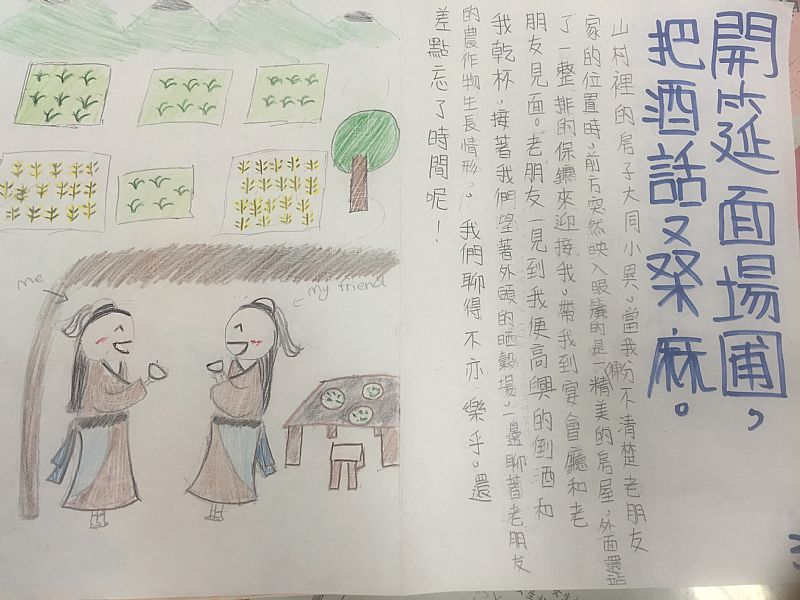 開筵面場圃，
把酒話桑麻。
山村裡的房子大同小異。當我分不清楚老朋友
家的位置時，前方突然映入眼簾的是一棟精美的房屋，外面還站
了一整排的保鑣來迎接我。帶我到宴會廳和老
朋友見面。老朋友一見到我便高興的倒酒和
我乾杯，接著我們望著外頭的晒穀場，一邊聊著老朋友
的農作物生長情形，我們聊得不亦樂乎。還
差點忘了時間呢！
me
my friend